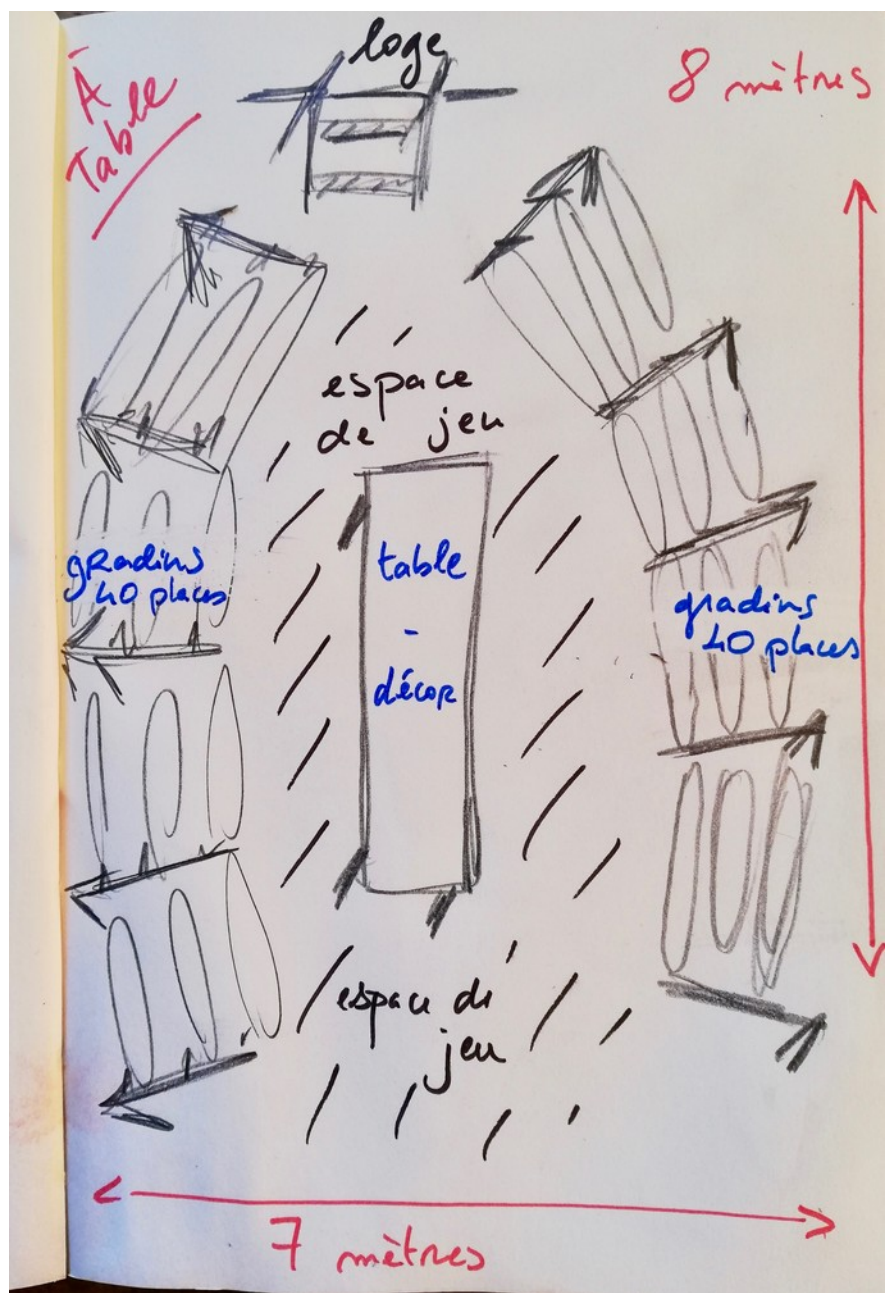 À
Table
loge
8 mètres
espace
de jeu
gradins
40 places
table
-
décor
gradins
40 places
espace de
jeu
7 mètres